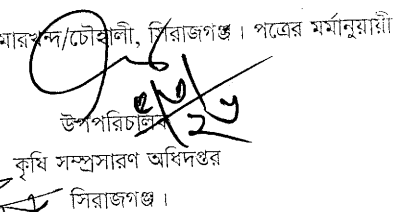 মারখন্দ/চৌহালী, সিরাজগঞ্জ। পত্রের মর্মানুযায়ী
উপপরিচালক
কৃষি সম্প্রসারণ অধিদপ্তর
সিরাজগঞ্জ।